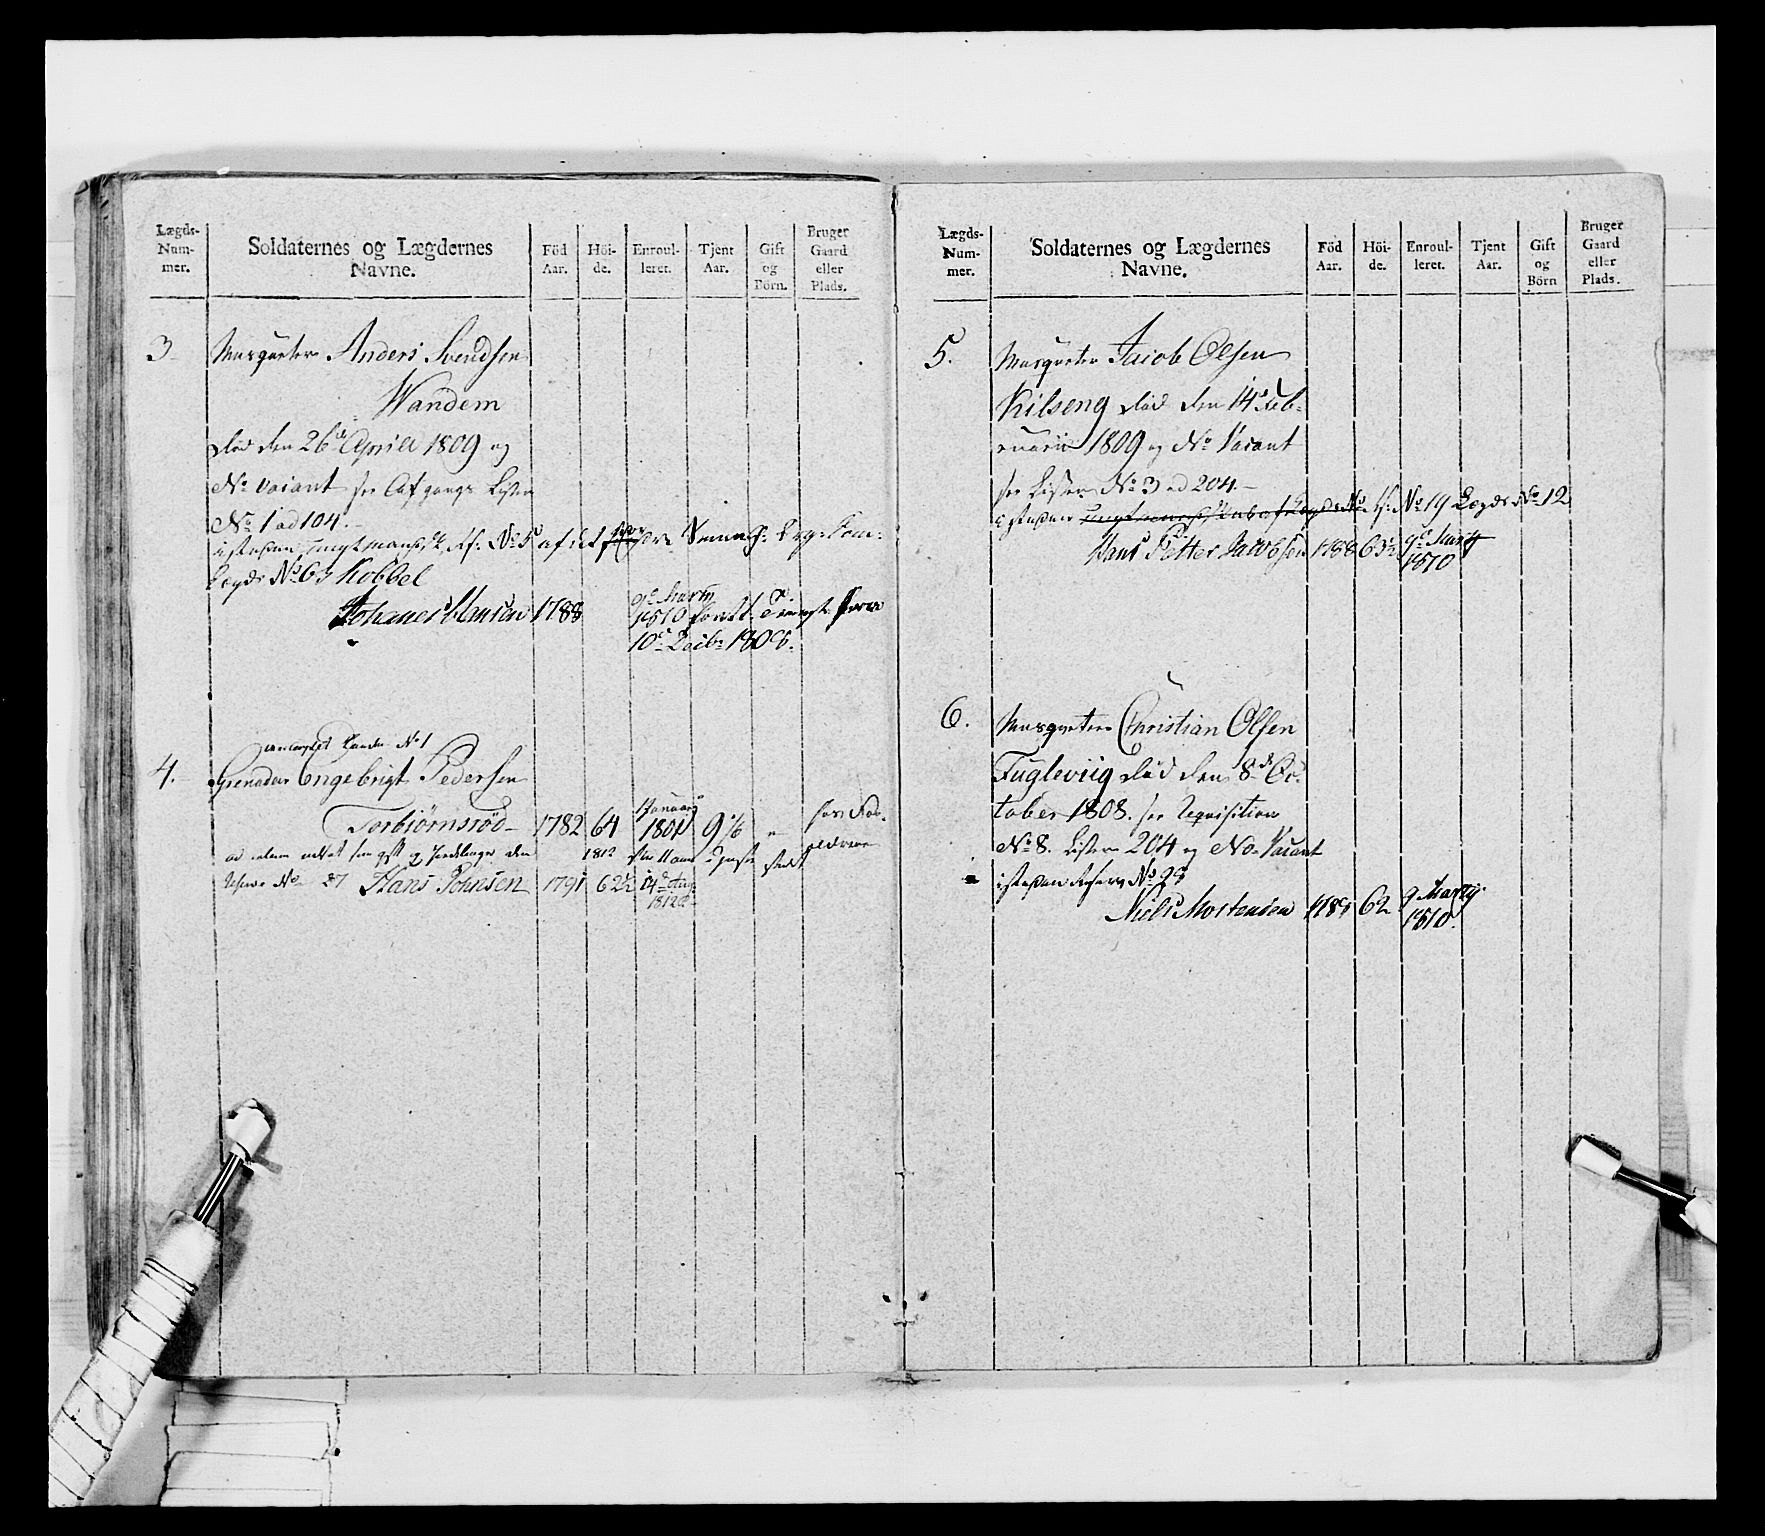 Lægds-Num-mer. Soldaternes og Lægdernes Navne. Föd Aar. Höi-de. Enroul-leret. Tjent Aar. Gift og Börn. Bruger Gaard eller Plads.
3 Musqueteer Anders Svendsen
Wandem
död den 26de Aprill 1809 og
No vacant see Afgangs Listen
No 1 ad 104.
No 5 af det
Lægds No 63 Kobbel
Johanes Hansen 1788 9de Martii
1810
10de Decibr 1808.
No 1
4. Grenadeer Engebrigt Pedersen
Torbiörnsröd 1782 64 1 Januarii 1801 9 1/6 "
1812
Reserve No 37 Hans Johnsen 1791 62 1/2 14de Aug
1812
Lægds-Num-mer. Soldaternes og Lægdernes Navne. Föd Aar. Höi-de. Enroul-leret. Tjent Aar. Gift og Börn Bruger Gaard eller Plads.
5. Musqueteer Jacob Olsen
Kilseng död den 14de Feb-
ruarii 1809 og No Vacant
see Listen No 3 ad 204.
istæden No 19 Lægds No 12
Hans Petter Jacobsen 1788 63 1/2 9de Martii
1810
6. Musqueteer Christian Olsen
Fugleviig död den 8de Oc-
tober 1808. see Requisition
No 8. Listen 204 og No Vacant
istæden Reserve No
Niels Mortensen 62 9 Martii
1810.